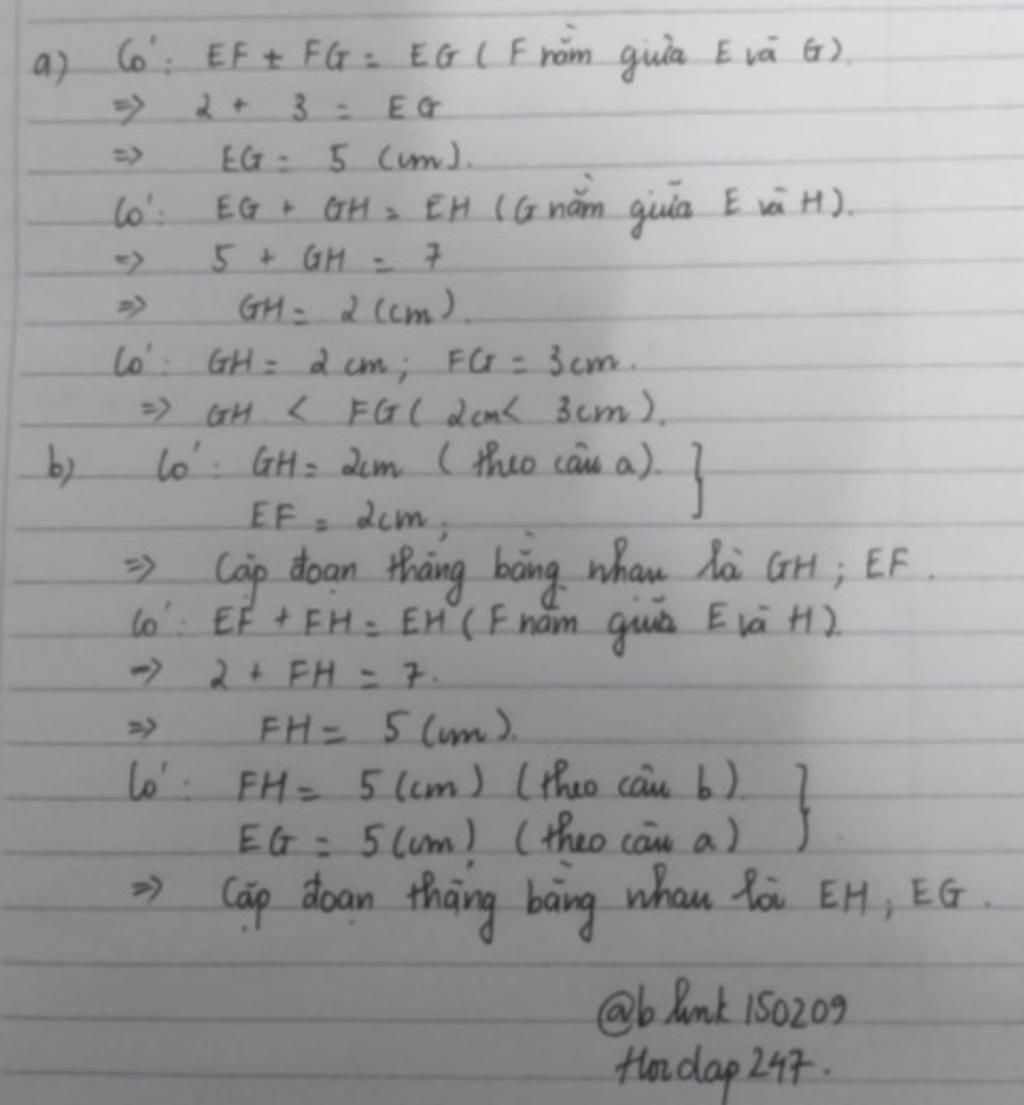 a) Có: EF + FG = EG ( F nằm giữa E và G).
=> 2 + 3 = EG
=> EG = 5 (cm).
Có: EG + GH = EH (G nằm giữa E và H).
=> 5 + GH = 7
=> GH = 2 (cm).
Có: GH = 2 cm; FG = 3cm.
=> GH < FG ( 2cm < 3cm).
b) Có: GH = 2cm ( theo câu a). }
EF = 2cm;
=> Cặp đoạn thẳng bằng nhau là GH ; EF.
Có: EF + FH = EH ( F nằm giữa E và H).
=> 2 + FH = 7.
=> FH = 5 (cm).
Có: FH = 5 (cm) (theo câu b). }
EG = 5 (cm) (theo câu a)
=> Cặp đoạn thẳng bằng nhau là EH ; EG.
@blink150209
Hoidap247.